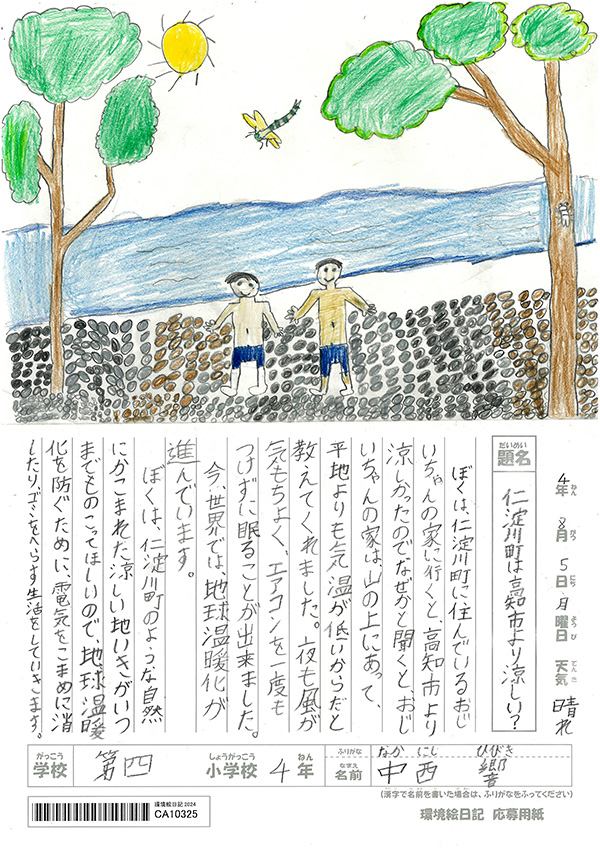 4年 8月 5日 月曜日 天気 晴れ
ねん がつ にち ようび てんき
だいめい
題名
仁淀川町は高知市より涼しい?
ぼくは、仁淀川町に住んでいるおじ
いちゃんの家に行くと、高知市より
涼しかったのでなぜかと聞くと、おじ
いちゃんの家は、山の上にあって、
平地よりも気温が低いからだと
教えてくれました。夜も風が
気もちよく、エアコンを一度も
つけずに眠ることが出来ました。
今、世界では、地球温暖化が
進んでいます。
ぼくは、仁淀川町のような自然
にかこまれた涼しい地いきがいつ
までものこってほしいので、地球温暖
化を防ぐために、電気をこまめに消
したり、ゴミをへらす生活をしていきます。
がっこう
学校
第四
しょうがっこう
小学校
4
ねん
年
ふりがな
なか にし ひびき
なまえ
名前
中西 響
(漢字で名前を書いた場合は、ふりがなをふってください)
環境絵日記2024
CA10325
環境絵日記 応募用紙